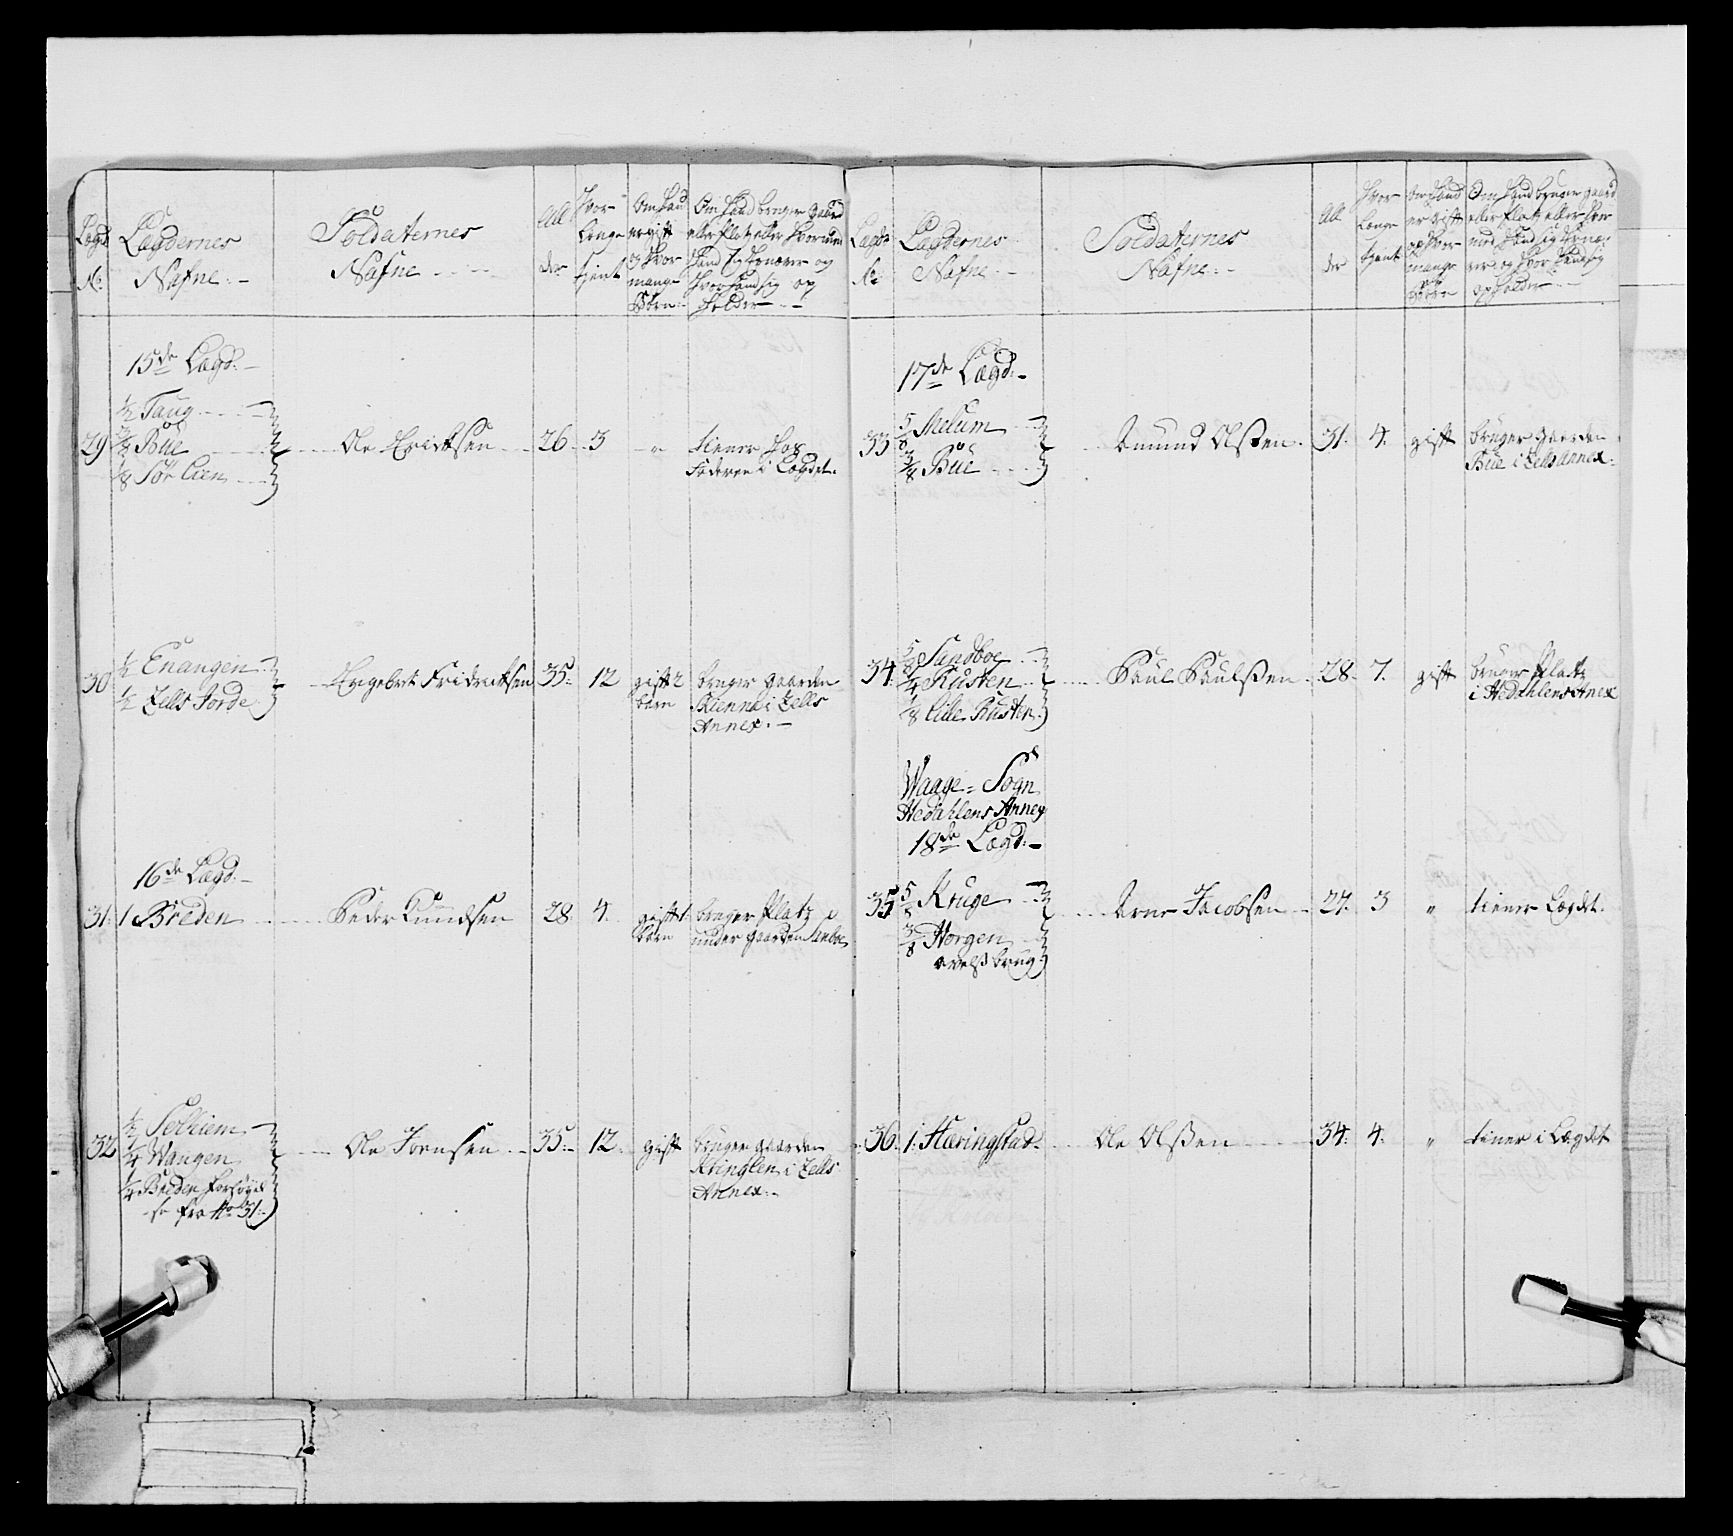 Lægd
No:
Lægdernes
Nafne:-
Soldaternes
Nafne
All
der
Hvor
længe
tjent
Om hand
er gift
og hvor
mange
Børn
Om hand bruger gaard
eller Platz eller hvor med
hand sig ernærer og
hvor hand sig op
holder
15de Lægd:-
29
1/2 Taug
Bue
1/8 Sør Lien
Ole Erichsen
26
3
"
tiener hos
Faderen i Lægdet.
30
1/2 Enangen
1/2 Zells Jorde
Engebret Fridrichsen
35
12
gift 2
børn
bruger gaarden
i Zells
Annex.-
16de Lægd:-
31
1 Breden
Peder Knudsen
28
4.
gift 1
børn
bruger Platz
under gaarden Sanboe
32
1/2 Selkiem
1/4 Wangen
1/4 Breden forhøyel
se fra No 31:
Ole Jørnsen
35
12
gift
bruger gaarden
Kringlen i Zells
Annex:-
Lægds
No:
Lægdernes
Nafne:-
Soldaternes
Nafne:-
All
der
Hvor
længe
tjent
Om hand
er gift
og hvor
mange
Børn
Om hand bruger gaard
eller Platz eller hvor
med hand sig ernæ-
rer og hvor hand sig
opholder
17de Lægd:-
33
5/8 Melum
3/8 Bue
Amund Olsen
31.
4.
gift
bruger gaarden
Bue i Zells Annex:
34
5/8 Sandboe
1/4 Rusten
1/8 Lille Rusten
Poul Poulsen
28
7.
gift
bruger Platz
i Hedahlens Anex
Waage-Sogn
Hedahlens Annex
18de Lægd:-
35
5/8 Kruge
3/8 Horgen
avels brug
Arne Jacobsen
27.
3
"
tiener Lægdet.
36
1. Hæringstad
Ole Olsen
34.
4.
"
tiener i Lægdet